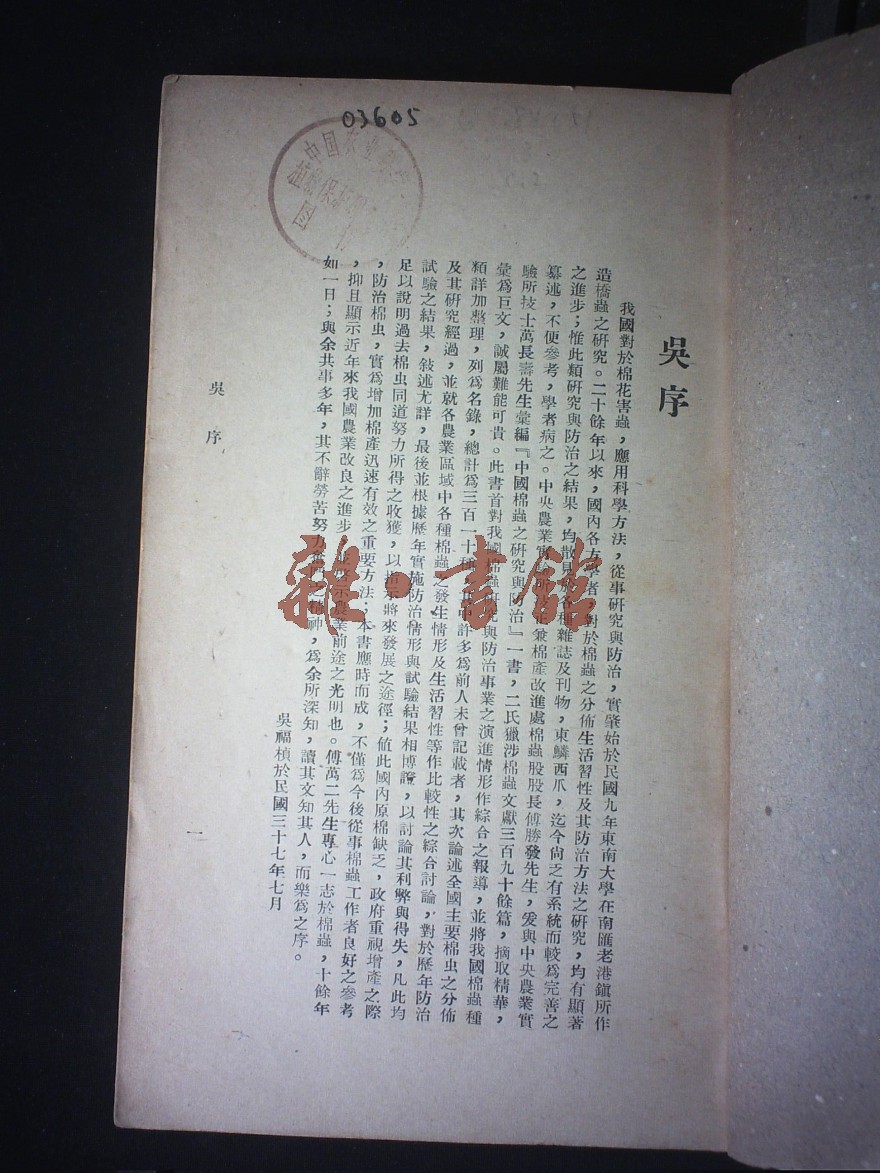 03605
中国
植物保
图
吳序
我國對於棉花害蟲，應用科學方法，從事研究與防治，實肇始於民國九年東南大學在南匯老港鎮所作
造橋蟲之研究。二十餘年以來，國內各方學者，對於棉蟲之分佈生活習性及其防治方法之研究，均有顯著
之進步；惟此類研究與防治之結果，均散見於各種雜誌及刊物，東鱗西爪，迄今尙乏有系統而較爲完善之
纂述，不便參考，學者病之。中央農業實驗所技正兼棉產改進處棉蟲股股長傅勝發先生，爰與中央農業實
驗所技士萬長壽先生彙編『中國棉蟲之研究與防治』一書，二氏獵涉棉蟲文獻三百九十餘篇，摘取精華，
彙爲巨文，誠屬難能可貴。此書首對我國棉蟲研究與防治事業之演進情形作綜合之報導，並將我國棉蟲種
類詳加整理，列爲名錄，總計爲三百一十種，其中許多爲前人未曾記載者，其次論述全國主要棉虫之分佈
及其研究經過，並就各農業區域中各種棉蟲之發生情形及生活習性等作比較性之綜合討論，對於歷年防治
試驗之結果，敍述尤詳，最後並根據歷年實施防治情形與試驗結果相博證，以討論其利弊與得失，凡此均
足以說明過去棉虫同道努力所得之收獲，以指示將來發展之途徑；値此國內原棉缺乏，政府重視增產之際
，防治棉虫，實爲增加棉產迅速有效之重要方法；本書應時而成，不僅爲今後從事棉蟲工作者良好之參考
，抑且顯示近年來我國農業改良之進步，並啓示農業前途之光明也。傅萬二先生專心一志於棉蟲，十餘年
如一日；與余共事多年，其不辭勞苦努力奮鬥之精神，爲余所深知，讀其文知其人，而樂爲之序。
吳福楨於民國三十七年七月
吳序
一
雜·書館